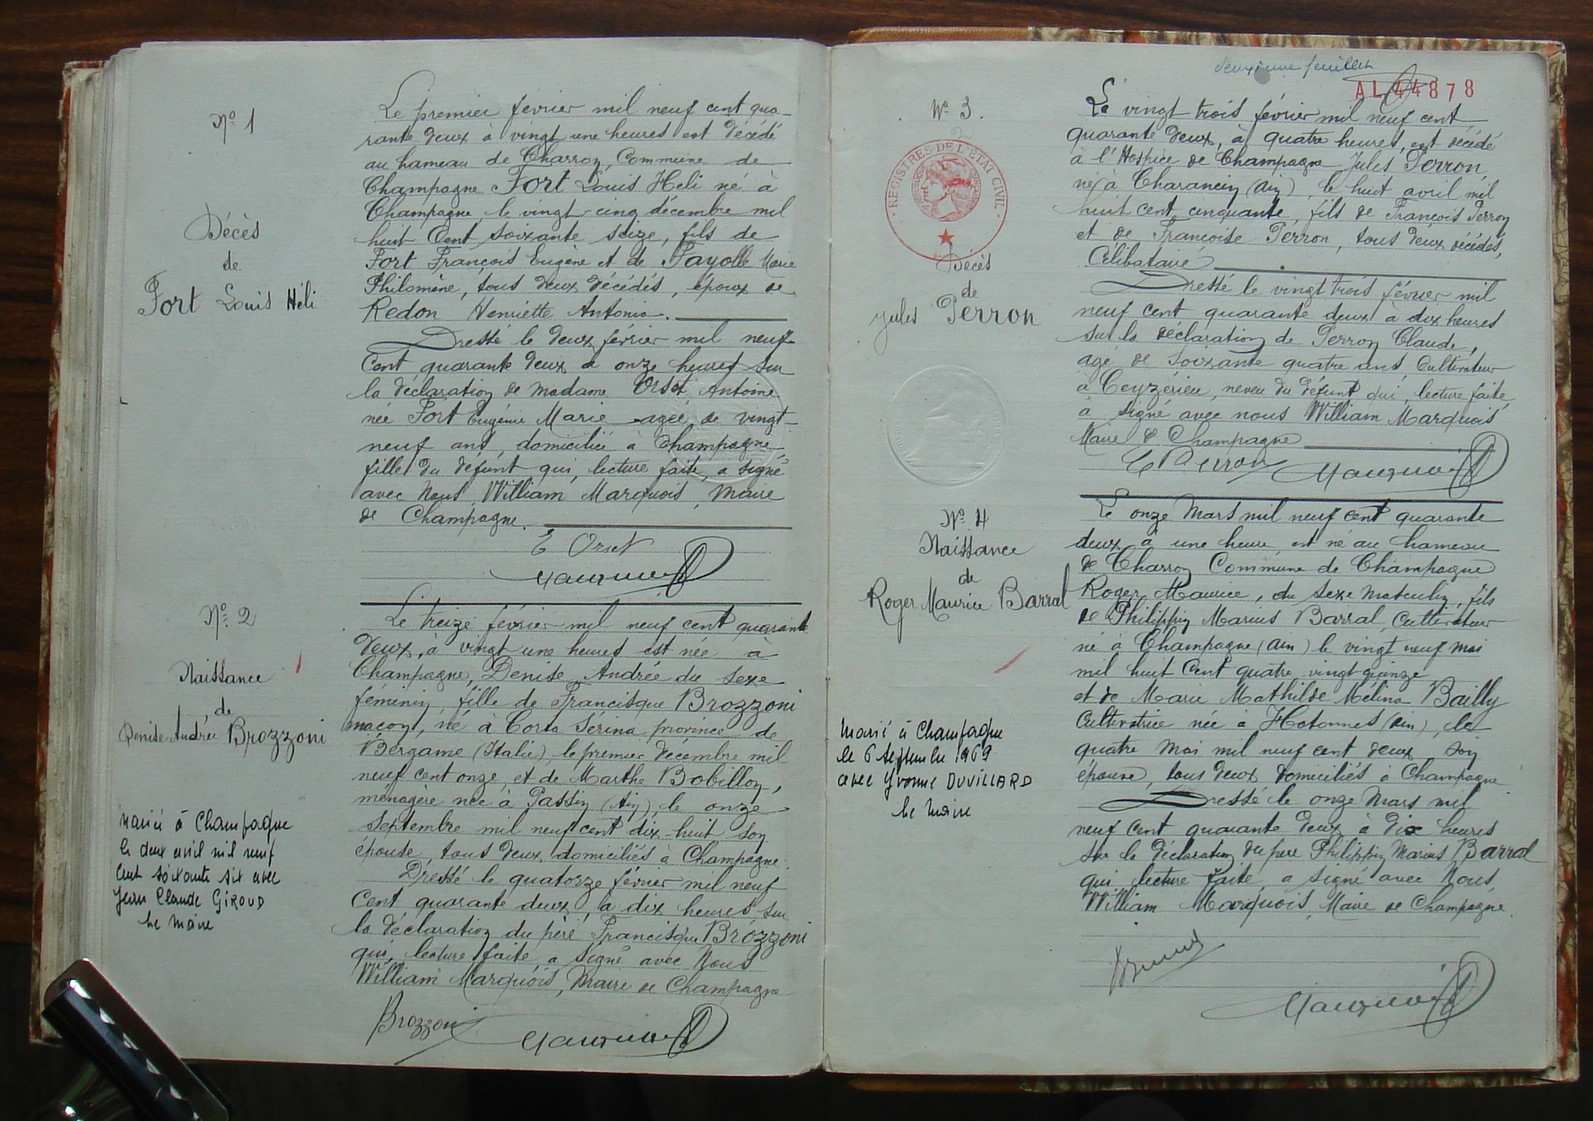 Nº 1
Décès
de
Fort Louis Héli
Le premier février mil neuf cent qua-
rante deux à vingt une heures est décédé
au hameau de Charron, Commune de
Champagne Fort Louis Heli né à
Champagne le vingt-cinq décembre mil
huit Cent soixante seize, fils de
Fort François Eugène et de Payolle Marie
Philomène, tous deux décédés, époux de
Redon Henriette Antonia.
Dressé le deux février mil neuf
Cent quarante deux à onze heures sur
la déclaration de Madame Orset Antoine
née Fort Eugénie Marie agée de vingt-
neuf ans, domiciliée à Champagne,
fille du défunt qui, lecture faite, a signé
avec Nous, William Marquois, Maire
de Champagne.
E Orset
Nº 2
Naissance
de
Denise Andrée Brozzoni
Le treize février mil neuf cent quarante
deux, à vingt une heures est née à
Champagne, Denise Andrée du sexe
féminin, fille de Francisque Brozzoni
maçon, né à Corta Serina province de
Bergame (Italie), le premier decembre mil
neuf cent onze, et de Marthe Bobillon,
ménagère née à Passin (Ain), le onze
Septembre mil neuf cent dix-huit son
épouse, tous deux domiciliés à Champagne.
Dressé le quatorze février mil neuf
Cent quarante deux, à dix heures sur
la déclaration du père Francisque Brozzoni
qui, lecture faite, a signé avec Nous
William Marquois, Maire de Champagne
Brozzoni
Marié à Champagne
le deux avril mil neuf
cent soixante six avec
Jean Claude GIROUD
Le Maire
deuxième feuillet
AL 44878
Nº 3.
REGISTRES DE L'ETAT CIVIL
Décès
de
Jules Perron
Le vingt trois février mil neuf cent
quarante deux, à quatre heures, est décédé
à l'Hospice de Champagne Jules Perron,
né à Charancin (Ain), le huit avril mil
huit cent cinquante, fils de François Perron
et de Françoise Perron, tous deux décédés,
Célibataire
Dressé le vingt trois février mil
neuf cent quarante deux à dix heures
sur la déclaration de Perron Claude,
agé de soixante quatre ans Cultivateur
à Ceyzerieu, neveu du défunt qui, lecture faite,
a signé avec nous William Marquois
Maire de Champagne
C Perron
Nº 4
Naissance
de
Roger Maurice Barral
Le onze Mars mil neuf cent quarante
deux à une heure, est né au hameau
de Charron Commune de Champagne
Roger Maurice, du sexe masculin, fils
de Philippin Marius Barral, Cultivateur
né à Champagne (Ain) le vingt neuf mai
mil huit Cent quatre vingt quinze
et de Marie Mathilde Mélina Bailly
Cultivatrice née à Hotonnes (Ain), le
quatre Mai mil neuf cent deux, son
épouse, tous deux domiciliés à Champagne
Dressé le onze Mars mil
neuf Cent quarante deux à dix heures
sur la déclaration du père Philippin Marius Barral
qui, lecture faite a signé avec Nous,
William Marquois, Maire de Champagne.
Marié à Champagne
le 6 septembre 1969
avec Yvonne DUVILLARD
Le Maire